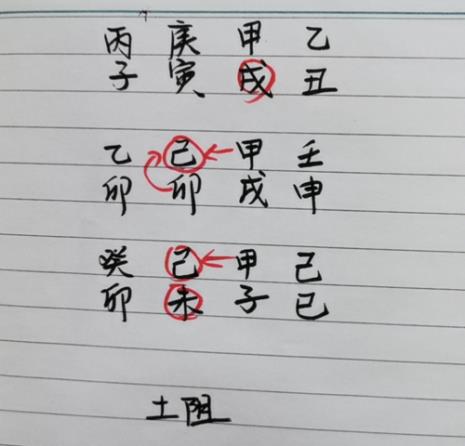 丙 庚 甲 乙
子 寅 戌 丑
乙 己 甲 壬
卯 卯 戌 申
癸 己 甲 己
卯 未 子 巳
土阻